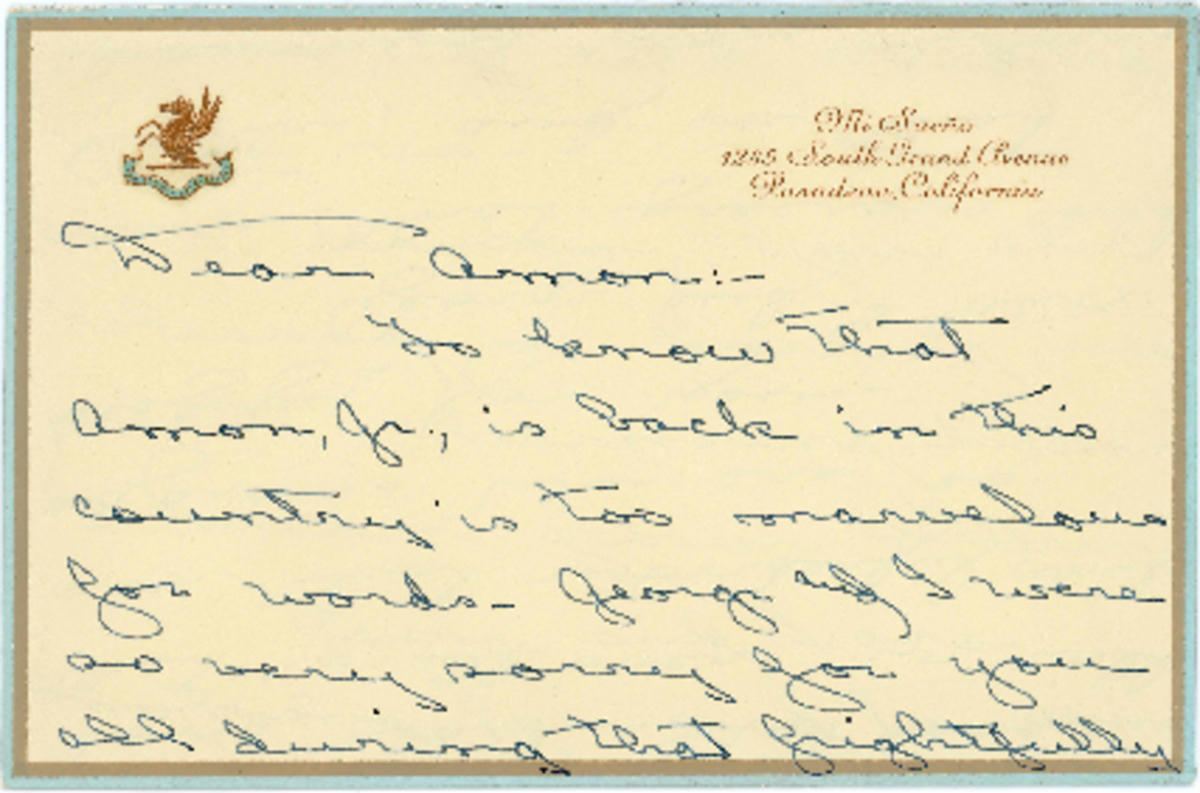 Mi Sueño
1285 South Grand Avenue
Pasadena, California
Dear Amon:-
To know that
Amon, Jr., is back in this
country is too marvelous
for words - George and I were
so very sorry for you
all during that frightfully